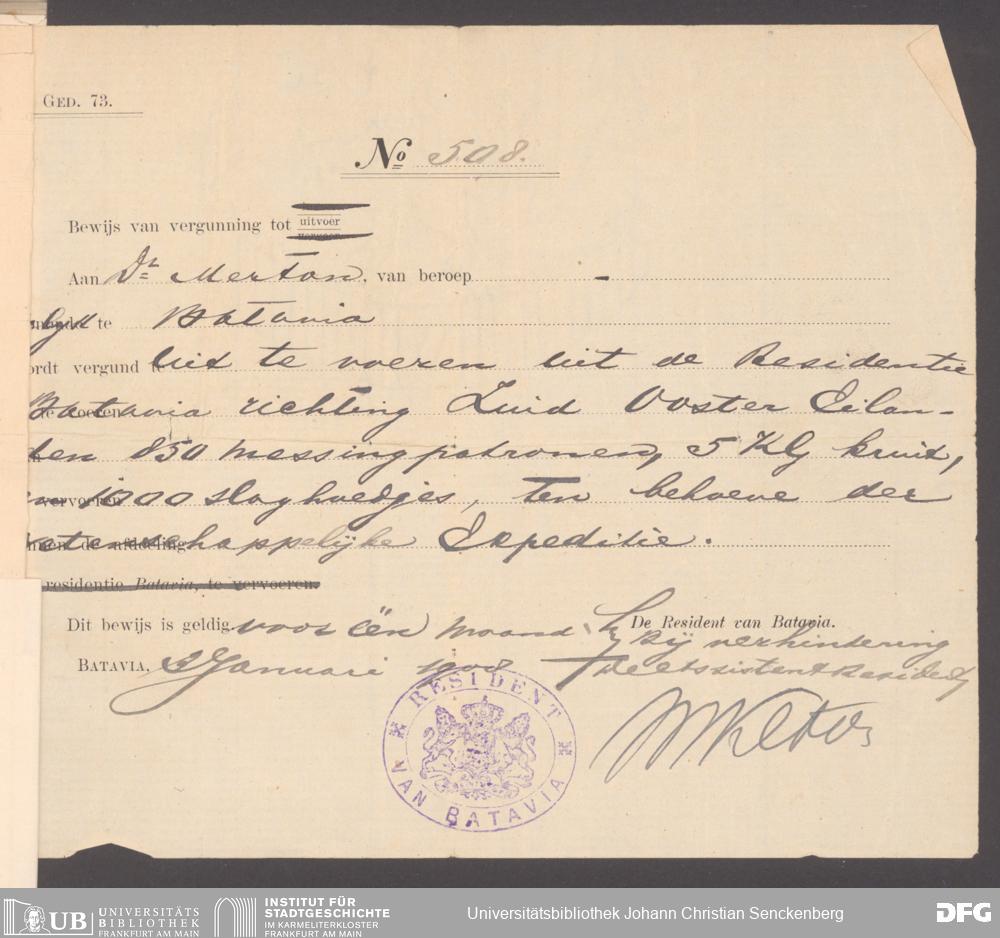 GED. 73.
No 508.
Bewijs van vergunning tot uitvoer
Aan Dr Merton, van beroep -
te Batavia
ordt vergund te uit te voeren uit de Residentie
Batavia richting Zuid Ooster Eilan-
den 850 messing patronen, 5 KG kruit,
1000 slaghoedjes, ten behoeve der
wetenschappelijke Expeditie.
residentie Batavia, te vervoeren.
Dit bewijs is geldig voor één maand. De Resident van Batavia.
Bij verhindering
BATAVIA, 3 Januari 1908 De Assistent Resident
RESIDENT
VAN BATAVIA
UB UNIVERSITÄTS
BIBLIOTHEK
FRANKFURT AM MAIN
INSTITUT FÜR
STADTGESCHICHTE
IM KARMELITERKLOSTER
FRANKFURT AM MAIN
Universitätsbibliothek Johann Christian Senckenberg
DFG